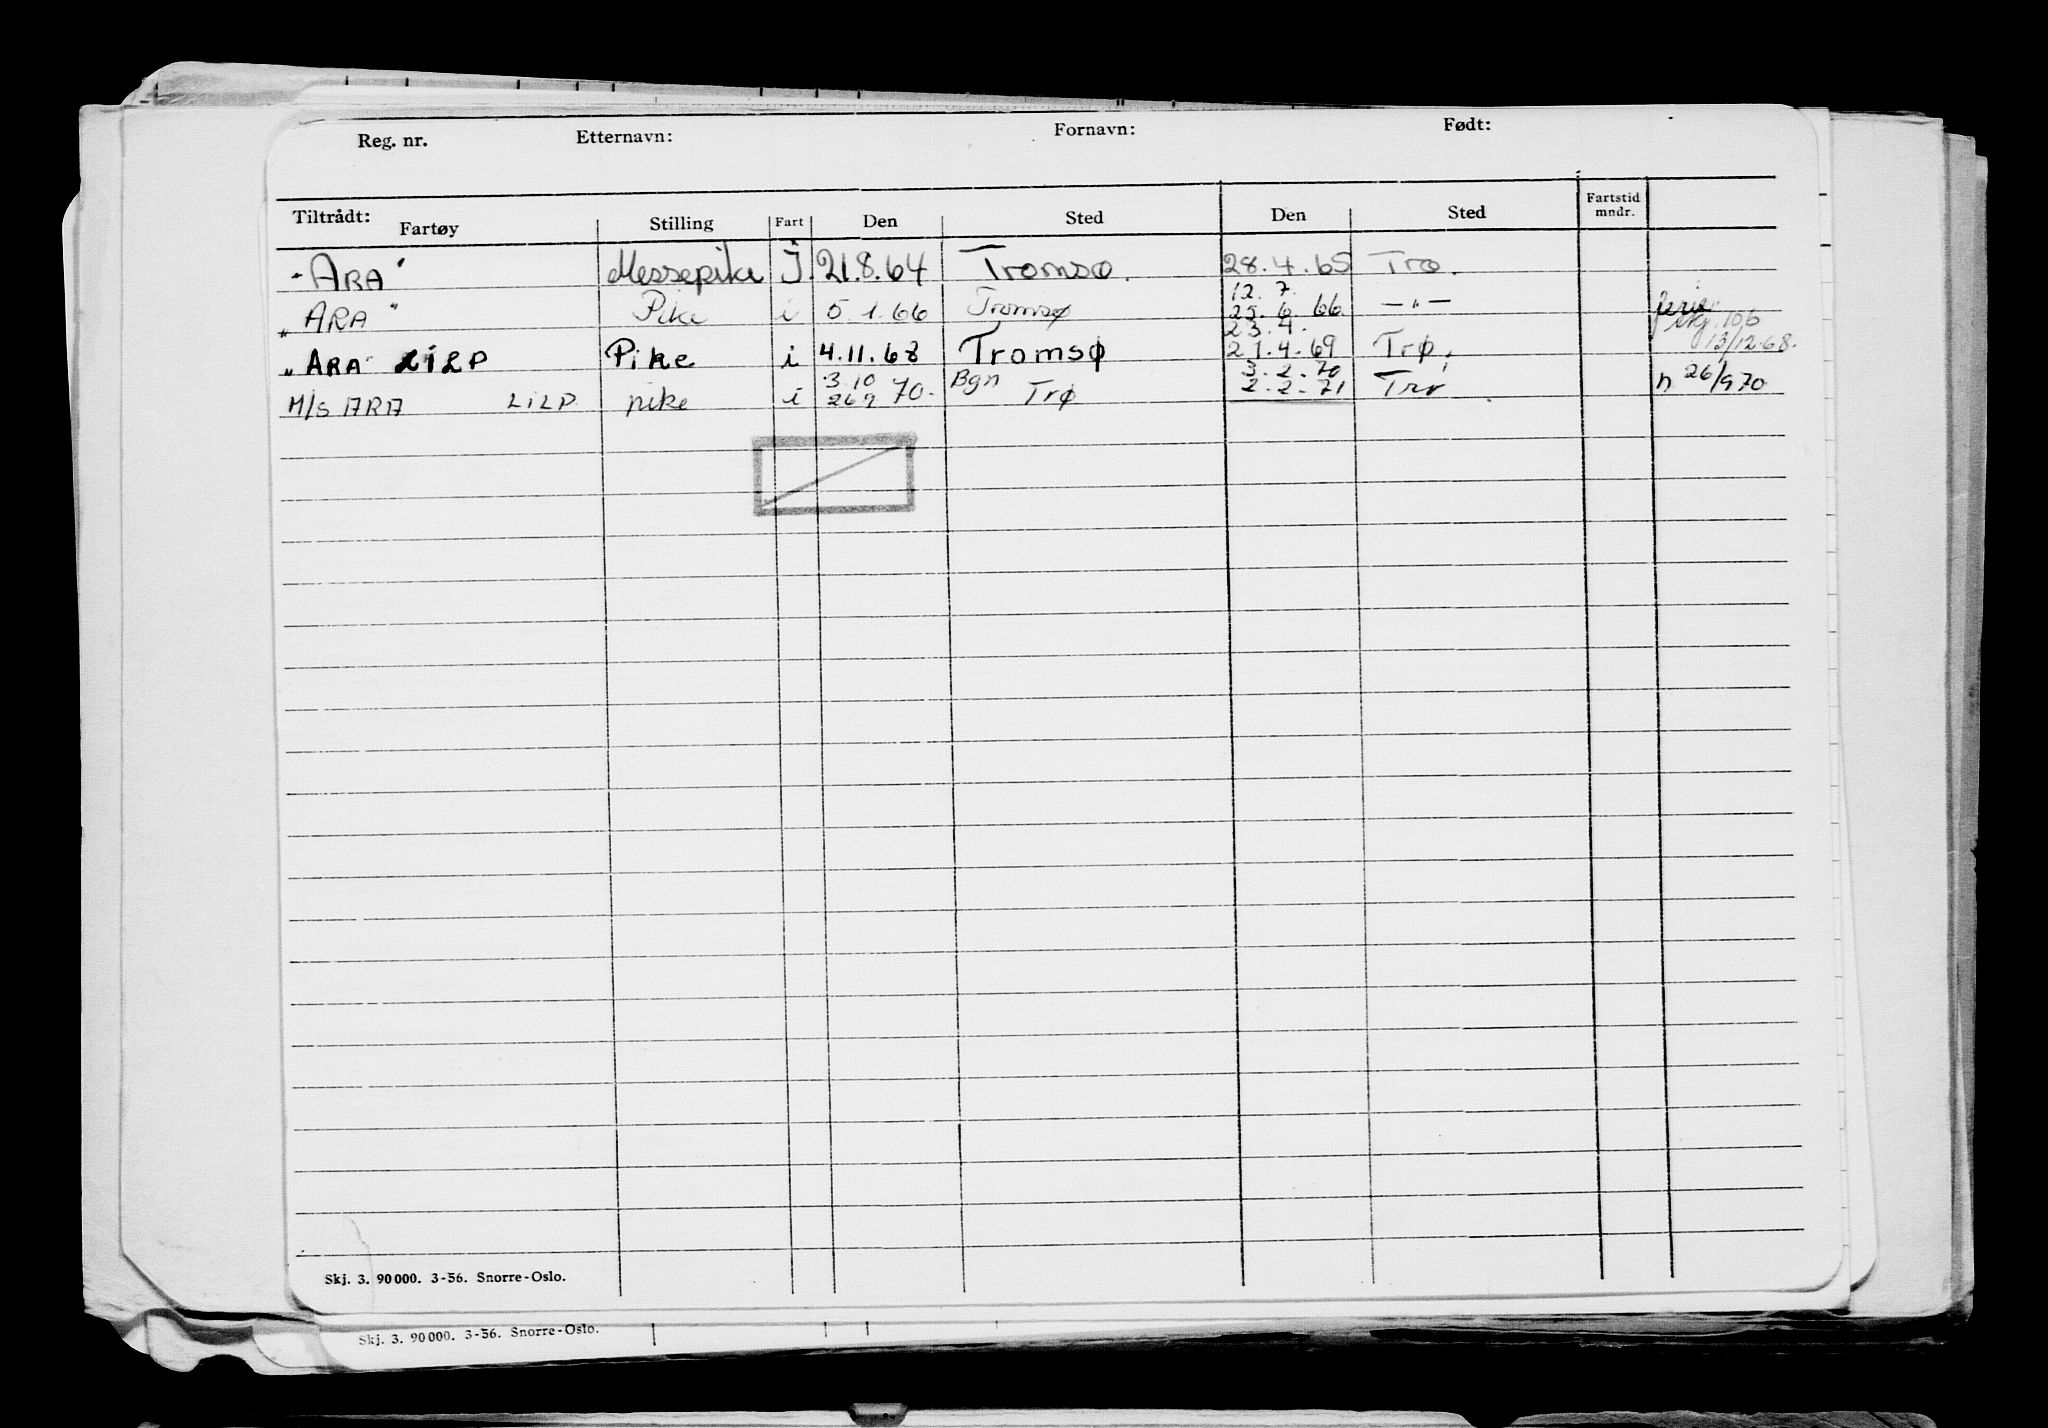 Reg. nr. Etternavn: Fornavn: Født:
Tiltrådt: Fartøy Stilling Fart Den Sted Den Sted Fartstid mndr.
"ARA" Messepike I 21.8.64 Tromsø. 28.4.65 Trø.
12. 7.
"ARA" Pike i 5.1.66 Tromsø 25.6.66 —"— ferie
23.4. skj. 106
"ARA" LILP Pike i 4.11.68 Tromsø 21.4.69 Trø. 13/12.68.
3.10 Bgn 3.2.70
M/S ARA LILP pike i 26 9 70. Trø 2.2.71 Trø n 26/9 70
Skj. 3. 90 000. 3-56. Snorre-Oslo.
Skj. 3. 90 000. 3-56. Snorre-Oslo.